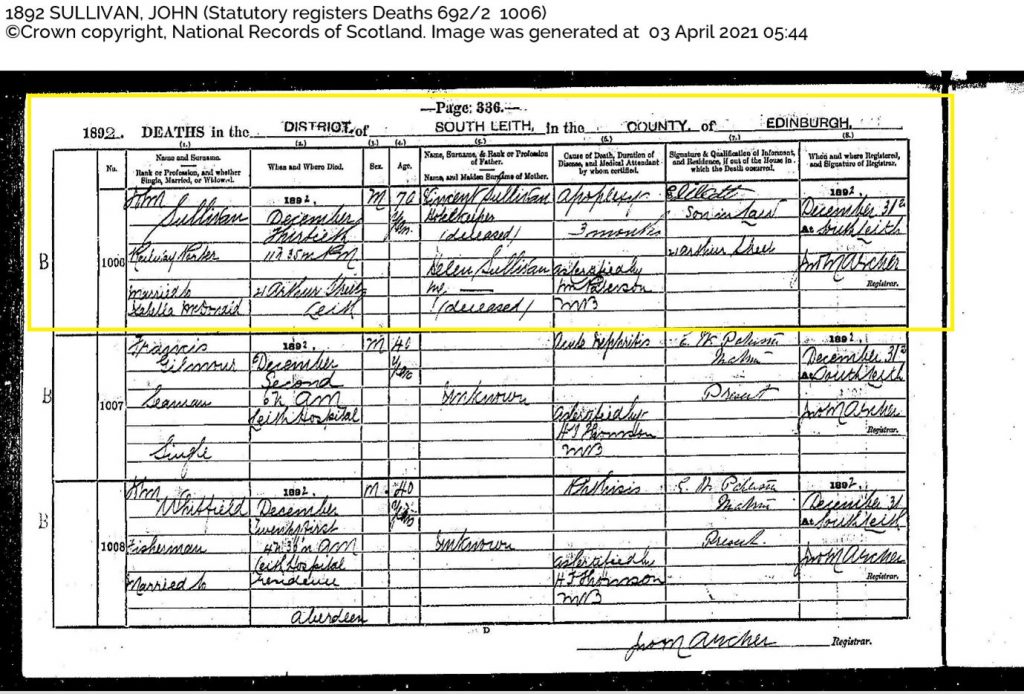 1892 SULLIVAN, JOHN (Statutory registers Deaths 692/2 1006)
©Crown copyright, National Records of Scotland. Image was generated at 03 April 2021 05:44
—Page: 336.—
1892. DEATHS in the DISTRICT of SOUTH LEITH, in the COUNTY of EDINBURGH,
(1.) (2.) (3.) (4.) (5.) (6.) (7.) (8.)
No.
Name and Surname.
Rank or Profession, and whether
Single, Married, or Widowed.
When and Where Died.
Sex.
Age.
Name, Surname, & Rank or Profession
of Father.
Name, and Maiden Surname of Mother.
Cause of Death, Duration of
Disease, and Medical Attendant
by whom certified.
Signature & Qualification of Informant,
and Residence, if out of the House in
which the Death occurred.
When and where Registered,
and Signature of Registrar.
B
1006
John
Sullivan
Railway Porter
Married to
McDonald
1892.
December
Thirtieth
11h 35m PM
21 Arthur Street
Leith
M
70
Yrs
Vincent Sullivan
Hotelkeeper
(deceased)
Helen Sullivan
(deceased)
Apoplexy
3 months
as certified by
Wm Paterson
MB
Son in law
21 Arthur Street
1892
December 31st
At South Leith
Jno M Archer
Registrar.
B
1007
Francis
Gilmour
Seaman
Single
1892.
December
Second
6h AM
Leith Hospital
M
40
Yrs
Unknown
Acute Nephritis
as certified by
Thomson
MB
Paterson
Matron
Present
1892
December 31st
At South Leith
Jno M Archer
Registrar.
B
1008
John
Whitfield
Fisherman
Married to
1892.
December
Twenty first
4h 30m AM
Leith Hospital
residence
Aberdeen
M
40
Yrs
Unknown
Phthisis
as certified by
Thomson
MB
Paterson
Matron
Present
1892
December 31
At South Leith
Jno M Archer
Registrar.
D
Jno M Archer Registrar.